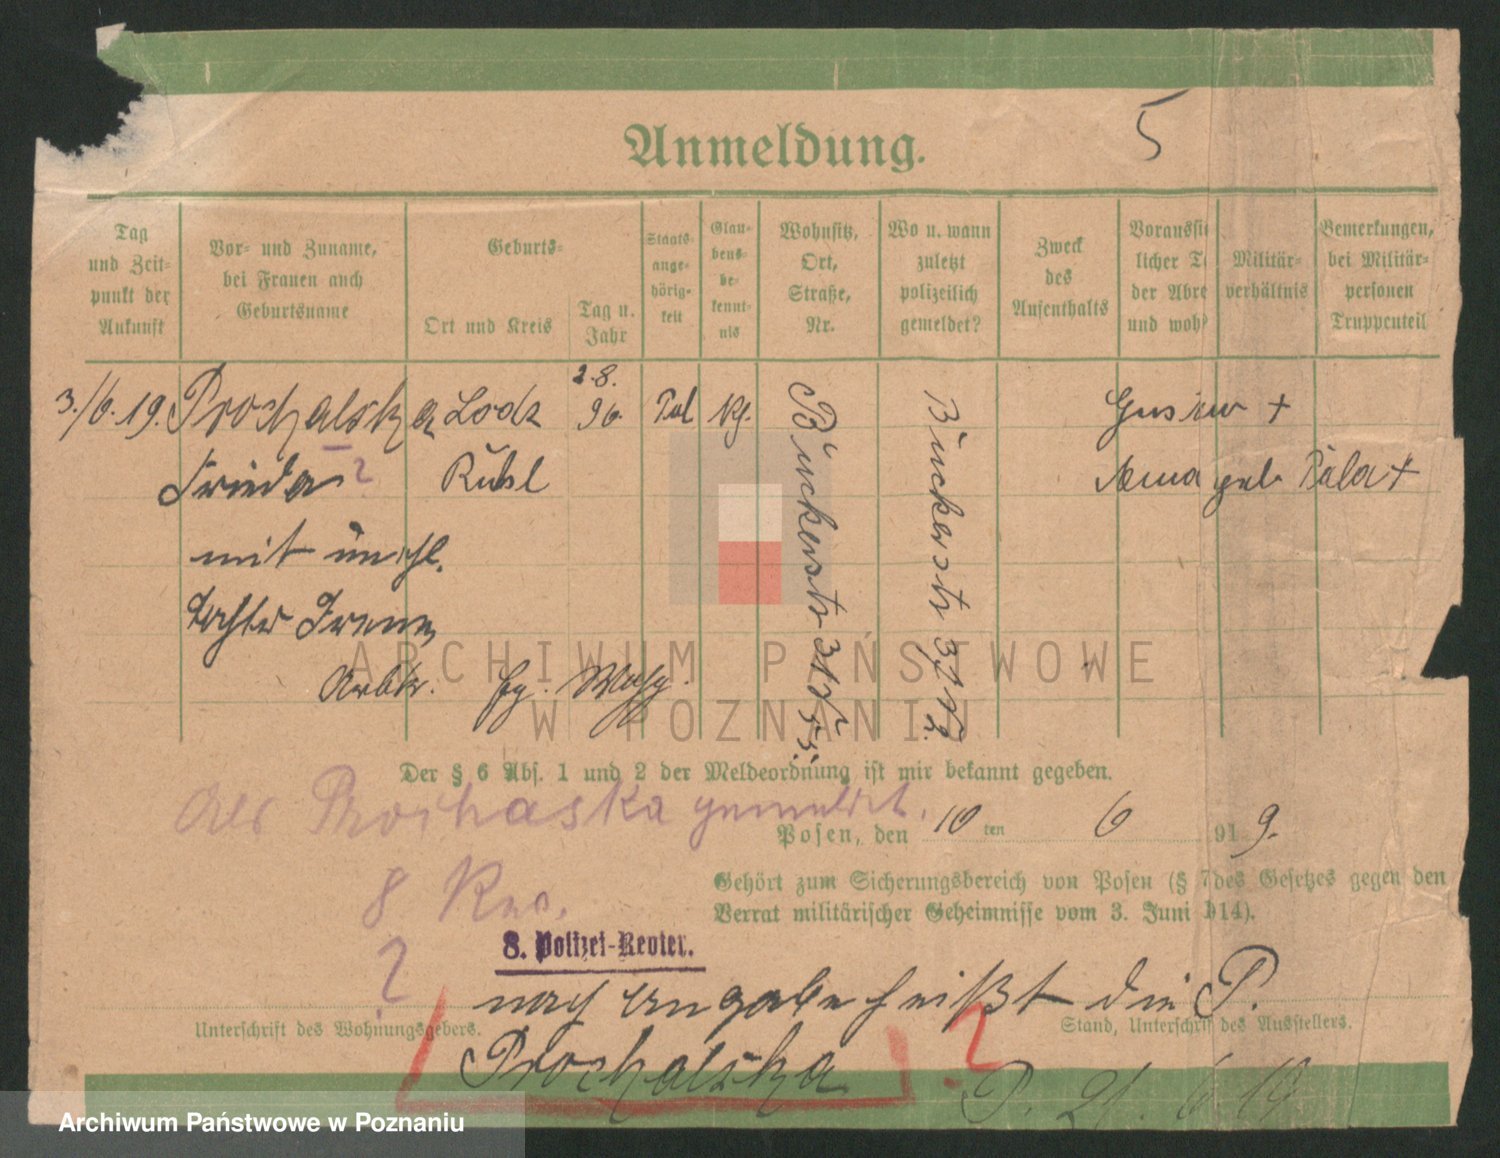 Anmeldung.
5
Tag und Zeit- punkt der Ankunft
Vor- und Zuname, bei Frauen auch Geburtsname
Geburts-
Ort und Kreis
Tag u. Jahr
Staats- ange- hörig- keit
Glau- bens- be- kennt- nis
Wohnsitz, Ort, Straße, Nr.
Wo u. wann zuletzt polizeilich gemeldet?
Zweck des Aufenthalts
Voraussi licher T der Abre und woh
Militär- verhältnis
Bemerkungen, bei Militär- personen Truppenteil
3./6.19. Prochalska Lodz 2.8. 96. Pol
Frieda ? Rühl
mit unehl.
Tochter Irene
Arbtr.
Bückerstr 31
Bückerstr 37
Gustav +
geb. +
ARCHIWUM PAŃSTWOWE
W POZNANIU
Der § 6 Abs. 1 und 2 der Meldeordnung ist mir bekannt gegeben.
Als Prochaska gemeldet.
Posen, den 10 ten 6 191 9.
8 Rev.
Gehört zum Sicherungsbereich von Posen (§ 7 des Gesetzes gegen den
Verrat militärischer Geheimnisse vom 3. Juni 1914).
8. Polizei-Revier.
?
nach Angabe heißt die P.
Unterschrift des Wohnungsgebers.
Stand, Unterschrift des Ausstellers.
Prochalska ?
P. 21. 6. 19
Archiwum Państwowe w Poznaniu